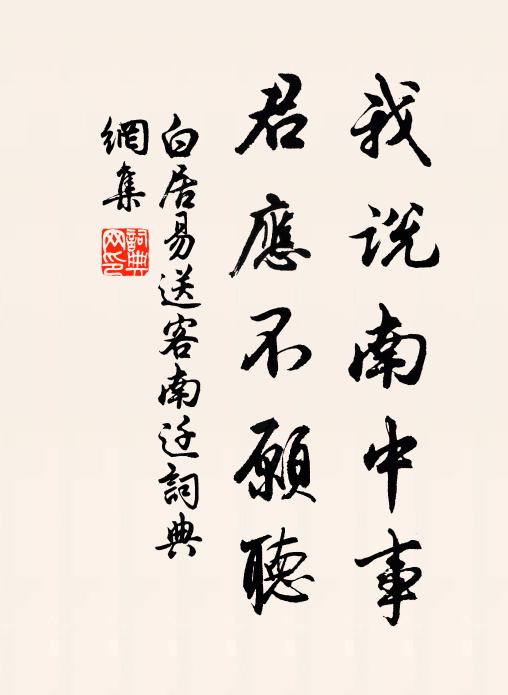 我说南中事
君應不願聽
白居易送客南迁詞典
網集
詞典网印